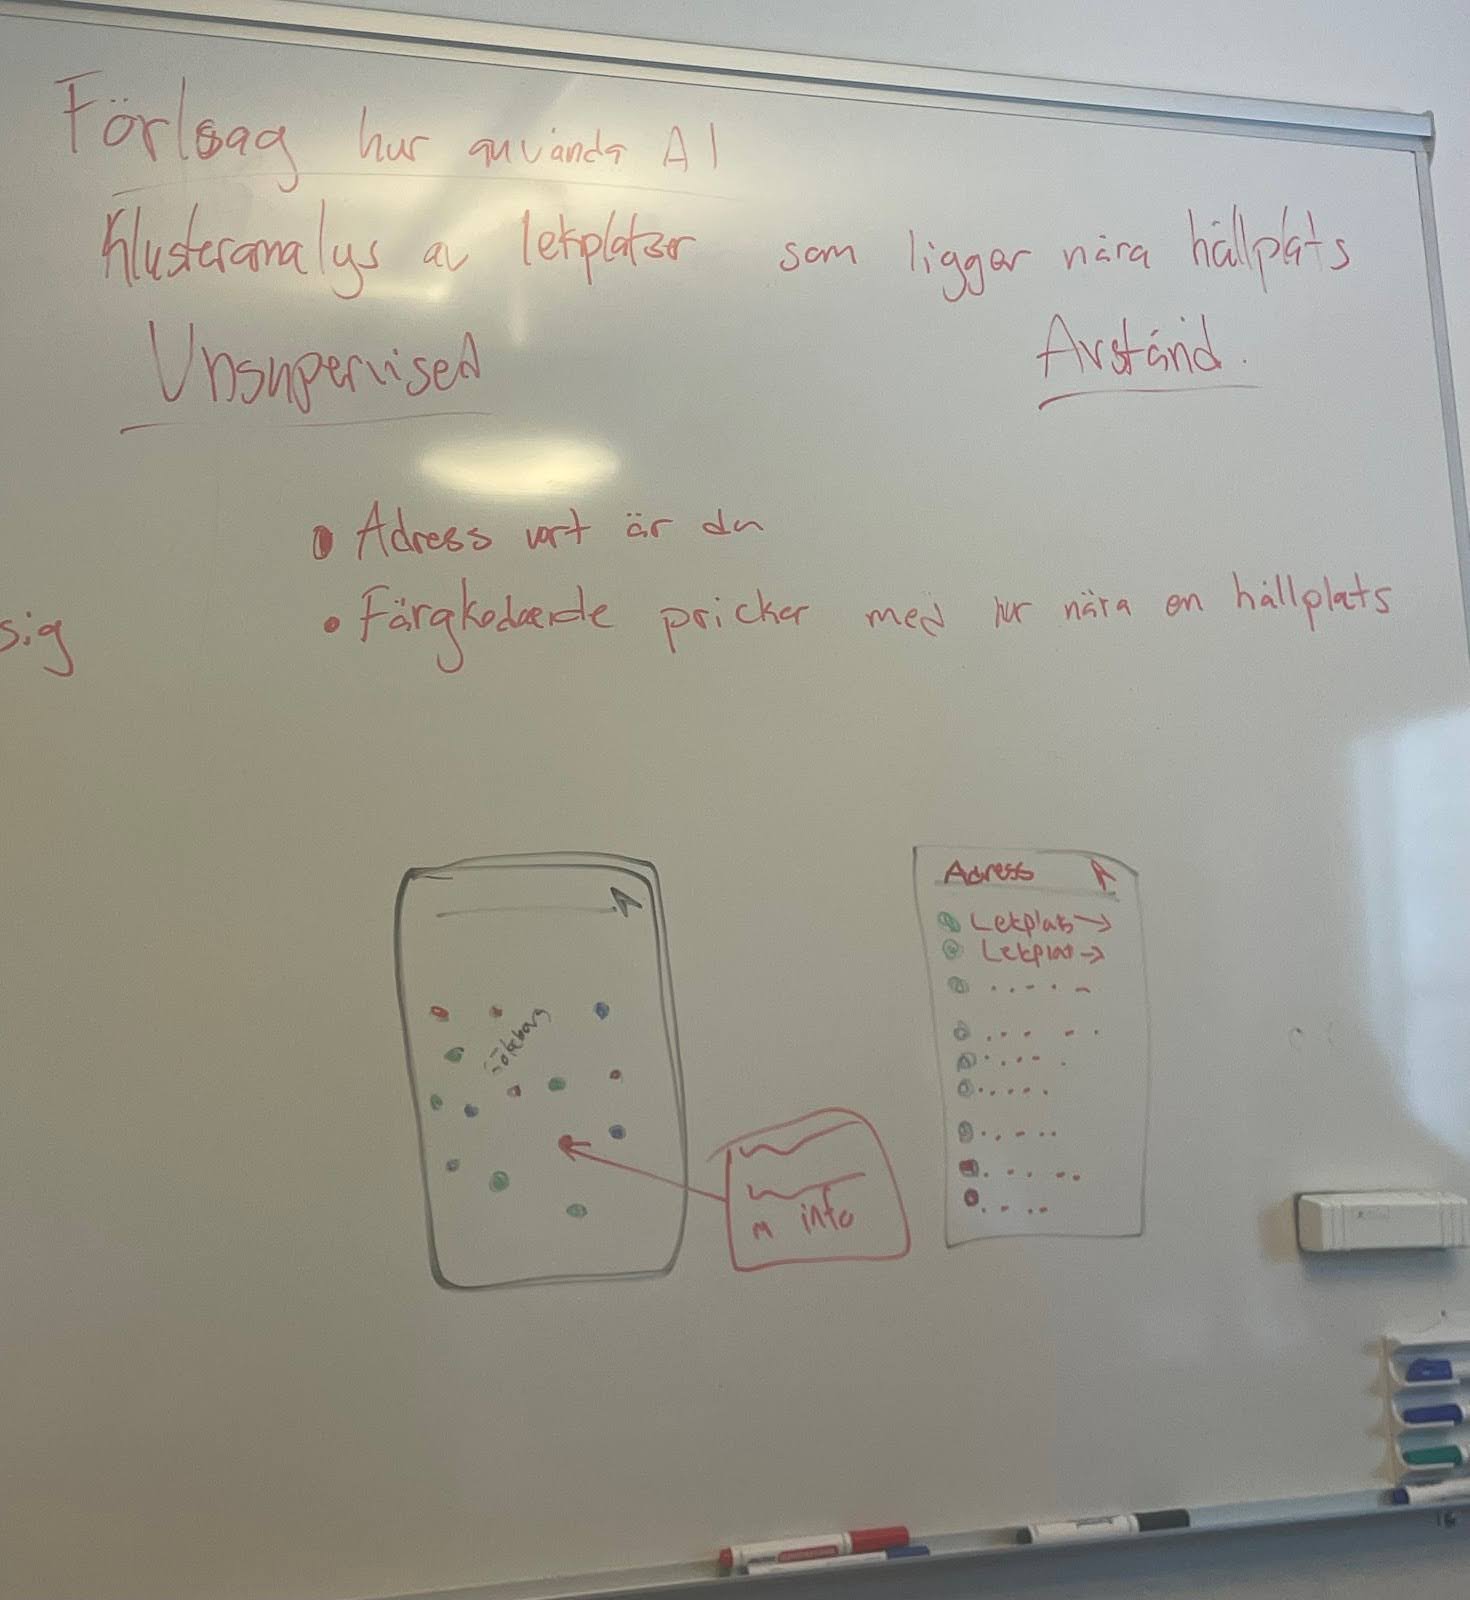 Förlsag hur använda AI
Klusteranalys av lekplatser som ligger nära hållplats
Unsupervised
Avstånd.
• Adress vart är du
• Färgkodaede pricker med hur nära en hållplats
sig
Göteborg
info
Adress
Lekplats →
Lekplat →